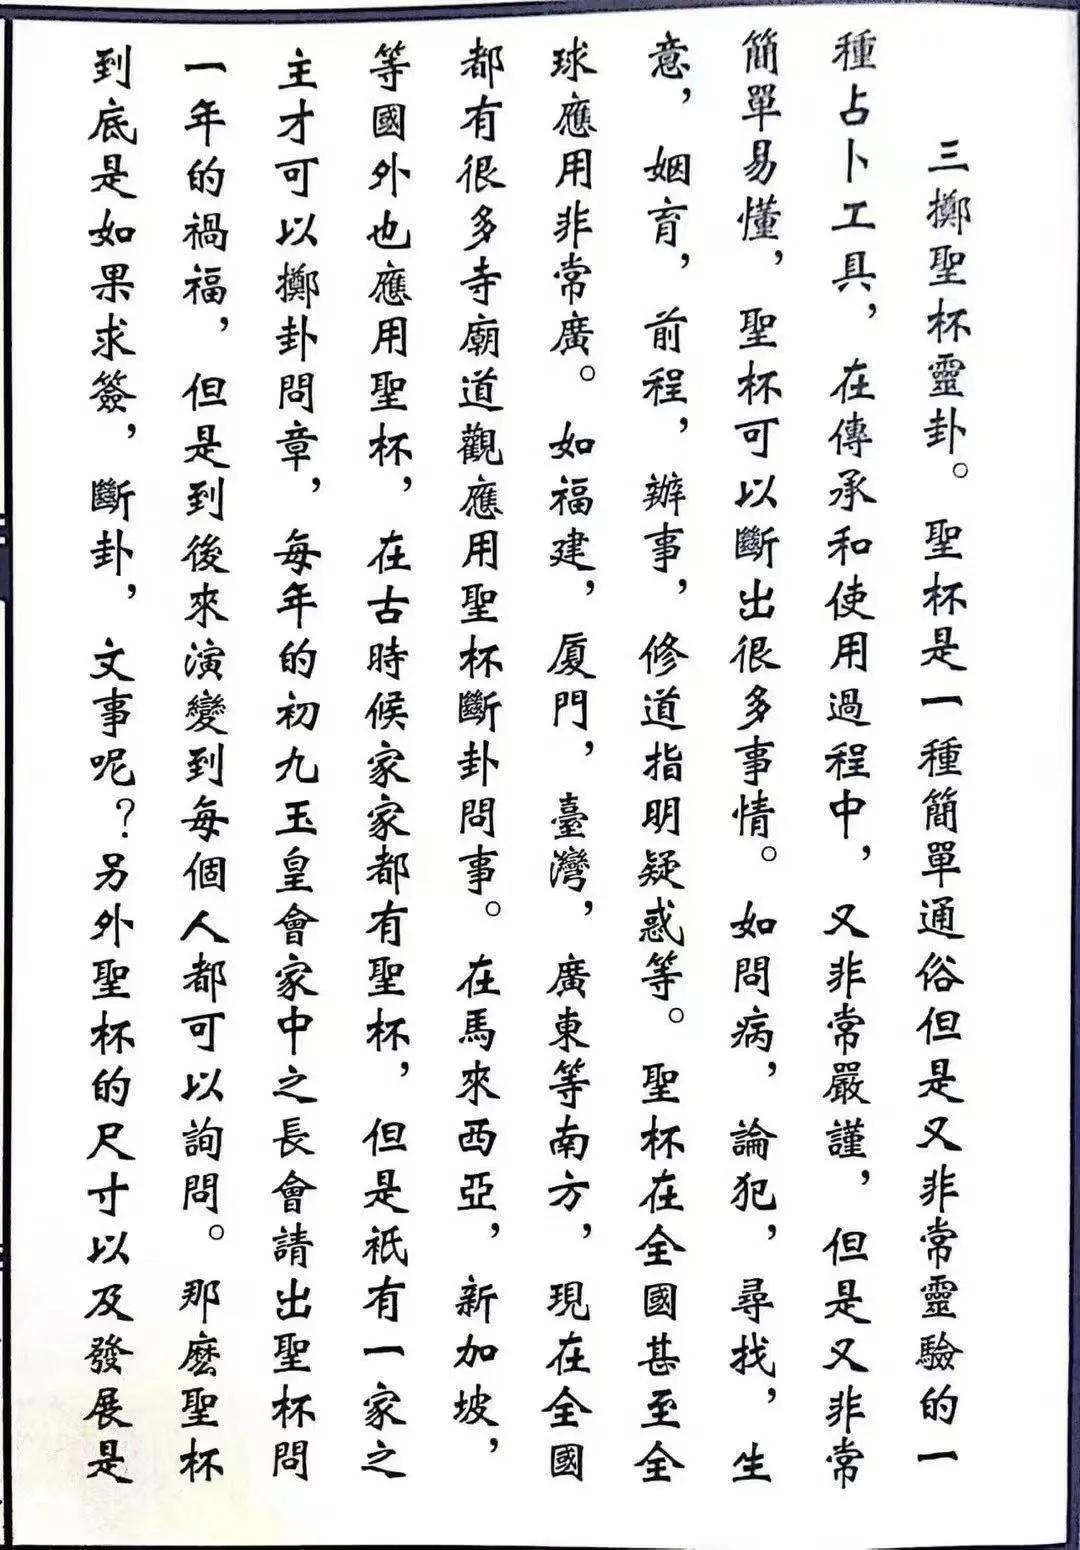 三擲聖杯靈卦。聖杯是一種簡單通俗但是又非常靈驗的一
種占卜工具，在傳承和使用過程中，又非常嚴謹，但是又非常
簡單易懂，聖杯可以斷出很多事情。如問病，論犯，尋找，生
意，姻育，前程，辦事，修道指明疑惑等。聖杯在全國甚至全
球應用非常廣。如福建，廈門，臺灣，廣東等南方，現在全國
都有很多寺廟道觀應用聖杯斷卦問事。在馬來西亞，新加坡，
等國外也應用聖杯，在古時候家家都有聖杯，但是祇有一家之
主才可以擲卦問章，每年的初九玉皇會家中之長會請出聖杯問
一年的禍福，但是到後來演變到每個人都可以詢問。那麽聖杯
到底是如果求簽，斷卦，文事呢？另外聖杯的尺寸以及發展是